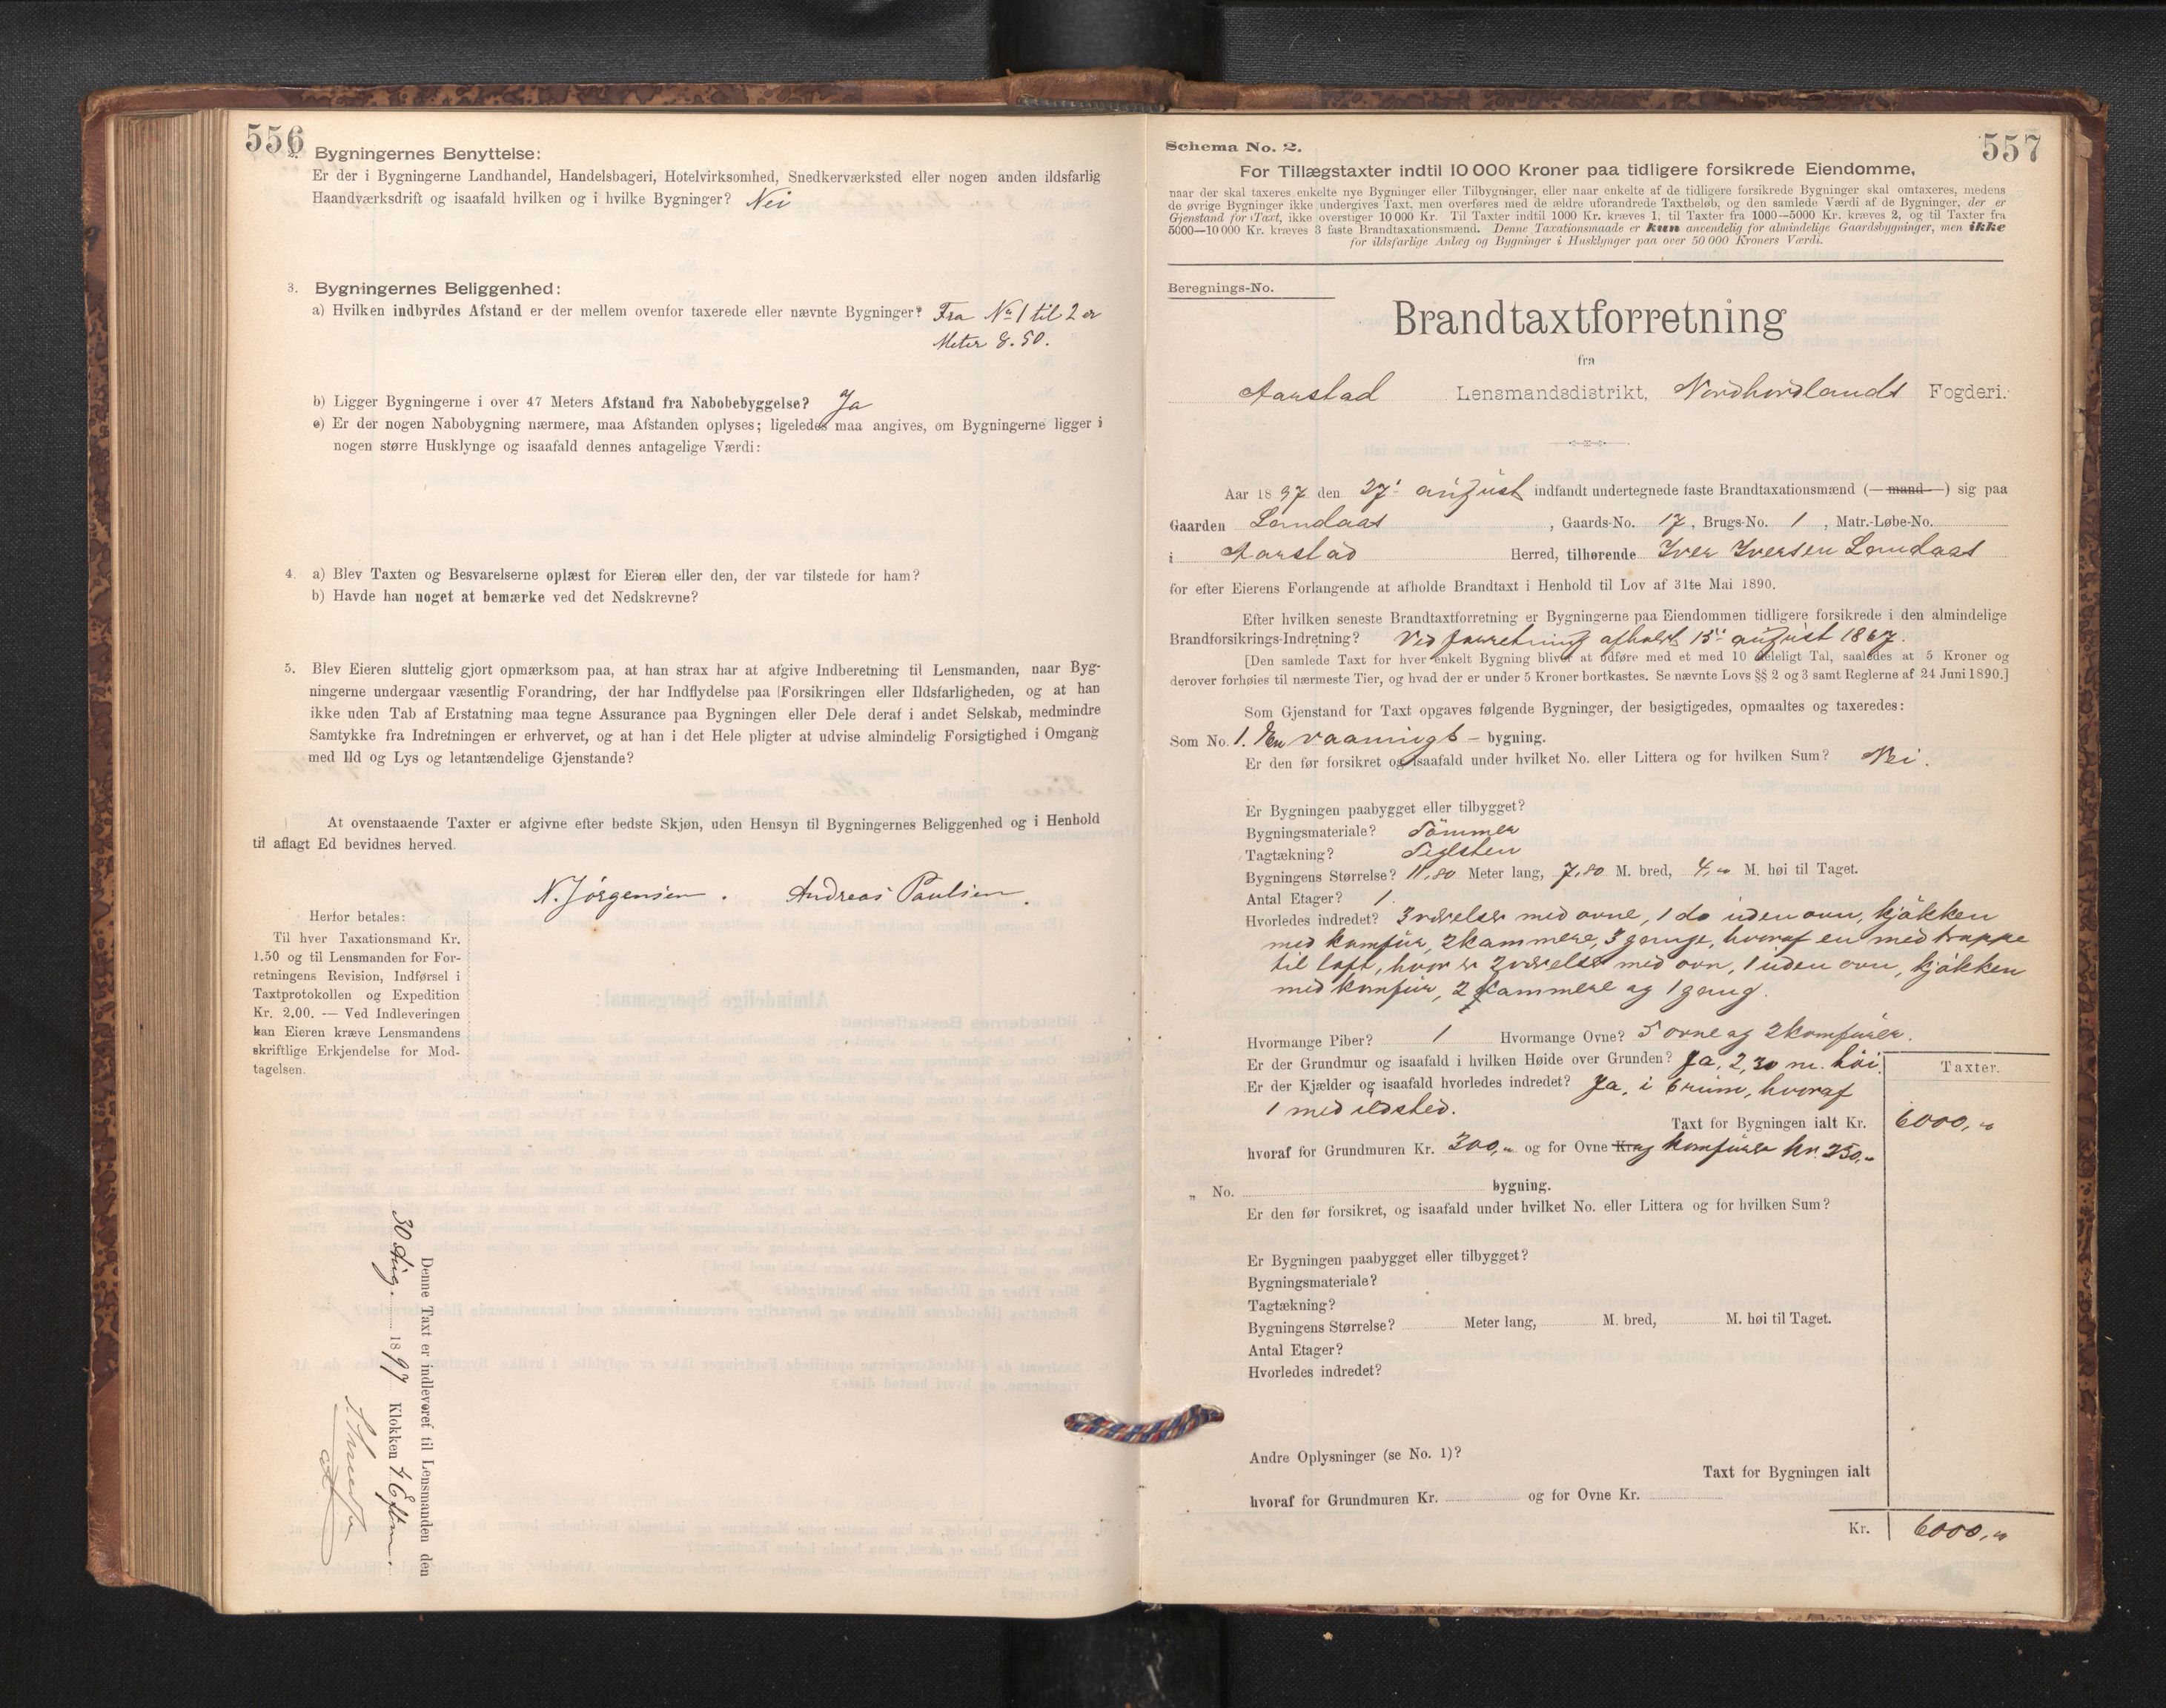 556
2. Bygningernes Benyttelse:
Er der i Bygningerne Landhandel, Handelsbageri, Hotelvirksomhed, Snedkerværksted eller nogen anden ildsfarlig
Haandværksdrift og isaafald hvilken og i hvilke Bygninger? Nei
3. Bygningernes Beliggenhed:
a) Hvilken indbyrdes Afstand er der mellem ovenfor taxerede eller nævnte Bygninger? Fra No 1 til 2 er
Meter 8.50.
b) Ligger Bygningerne i over 47 Meters Afstand fra Nabobebyggelse? Ja
c) Er der nogen Nabobygning nærmere, maa Afstanden oplyses; ligeledes maa angives, om Bygningerne ligger i
nogen større Husklynge og isaafald dennes antagelige Værdi:
4. a) Blev Taxten og Besvarelserne oplæst for Eieren eller den, der var tilstede for ham?
b) Havde han noget at bemærke ved det Nedskrevne?
5. Blev Eieren sluttelig gjort opmærksom paa, at han strax har at afgive Indberetning til Lensmanden, naar Byg-
ningerne undergaar væsentlig Forandring, der har Indflydelse paa Forsikringen eller Ildsfarligheden, og at han
ikke uden Tab af Erstatning maa tegne Assurance paa Bygningen eller Dele deraf i andet Selskab, medmindre
Samtykke fra Indretningen er erhvervet, og at han i det Hele pligter at udvise almindelig Forsigtighed i Omgang
med Ild og Lys og letantændelige Gjenstande?
At ovenstaaende Taxter er afgivne efter bedste Skjøn, uden Hensyn til Bygningernes Beliggenhed og i Henhold
til aflagt Ed bevidnes herved.
N. Jörgensen. Andreas Paulsen.
Herfor betales:
Til hver Taxationsmand Kr.
1.50 og til Lensmanden for For-
retningens Revision, Indførsel i
Taxtprotokollen og Expedition
Kr. 2.00. — Ved Indleveringen
kan Eieren kræve Lensmandens
skriftlige Erkjendelse for Mod-
tagelsen.
Denne Taxt er indleveret til Lensmanden den
30 Aug. 1897 Klokken 4 Eftm.
557
Schema No. 2.
For Tillægstaxter indtil 10 000 Kroner paa tidligere forsikrede Eiendomme,
naar der skal taxeres enkelte nye Bygninger eller Tilbygninger, eller naar enkelte af de tidligere forsikrede Bygninger skal omtaxeres, medens
de øvrige Bygninger ikke undergives Taxt, men overføres med de ældre uforandrede Taxtbeløb, og den samlede Værdi af de Bygninger, der er
Gjenstand for Taxt, ikke overstiger 10 000 Kr. Til Taxter indtil 1000 Kr. kræves 1, til Taxter fra 1000—5000 Kr. kræves 2, og til Taxter fra
5000—10 000 Kr. kræves 3 faste Brandtaxationsmænd. Denne Taxationsmaade er kun anvendelig for almindelige Gaardsbygninger, men ikke
for ildsfarlige Anlæg og Bygninger i Husklynger paa over 50 000 Kroners Værdi.
Beregnings-No.
Brandtaxtforretning
fra
Aarstad Lensmandsdistrikt, Nordhordlands Fogderi.
Aar 1897 den 27' august indfandt undertegnede faste Brandtaxationsmænd (—mand—) sig paa
Gaarden Landaas, Gaards-No. 17, Brugs-No. 1, Matr.-Løbe-No.
i Aarstad Herred, tilhørende Iver Iversen Landaas
for efter Eierens Forlangende at afholde Brandtaxt i Henhold til Lov af 31te Mai 1890.
Efter hvilken seneste Brandtaxtforretning er Bygningerne paa Eiendommen tidligere forsikrede i den almindelige
Brandforsikrings-Indretning? Ved forretning afholdt 15' august 1867.
[Den samlede Taxt for hver enkelt Bygning bliver at udføre med et med 10 deleligt Tal, saaledes at 5 Kroner og
derover forhøies til nærmeste Tier, og hvad der er under 5 Kroner bortkastes. Se nævnte Lovs §§ 2 og 3 samt Reglerne af 24 Juni 1890.]
Som Gjenstand for Taxt opgaves følgende Bygninger, der besigtigedes, opmaaltes og taxeredes:
Som No. 1. En vaanings- bygning.
Er den før forsikret og isaafald under hvilket No. eller Littera og for hvilken Sum? Nei.
Er Bygningen paabygget eller tilbygget?
Bygningsmateriale? Tömmer
Tagtækning? Teglsten
Bygningens Størrelse? 11,80 Meter lang, 7,80 M. bred, 4,00 M. høi til Taget.
Antal Etager? 1.
Hvorledes indredet? 3 værelser med ovne, 1 do uden ovn, kjökken
med komfur, 2 kammere, 3 gange, hvoraf en med trappe
til loft, hvor er 2 værelser med ovn, 1 uden ovn, kjökken
med komfur, 2 kammere og 1 gang.
Hvormange Piber? 1 Hvormange Ovne? 5 ovne og 2 komfurer.
Er der Grundmur og isaafald i hvilken Høide over Grunden? Ja, 2,30 m. höi.
Er der Kjælder og isaafald hvorledes indredet? Ja, i 6 rum, hvoraf
1 med ildsted.
Taxter.
Taxt for Bygningen ialt Kr. 6000,00
hvoraf for Grundmuren Kr. 300,00 og for Ovne Kr. og komfurer kr. 250,00
„ No. bygning.
Er den før forsikret, og isaafald under hvilket No. eller Littera og for hvilken Sum?
Er Bygningen paabygget eller tilbygget?
Bygningsmateriale?
Tagtækning?
Bygningens Størrelse? Meter lang, M. bred, M. høi til Taget.
Antal Etager?
Hvorledes indredet?
Andre Oplysninger (se No. 1)?
Taxt for Bygningen ialt
hvoraf for Grundmuren Kr. og for Ovne Kr.
Kr. 6000,00